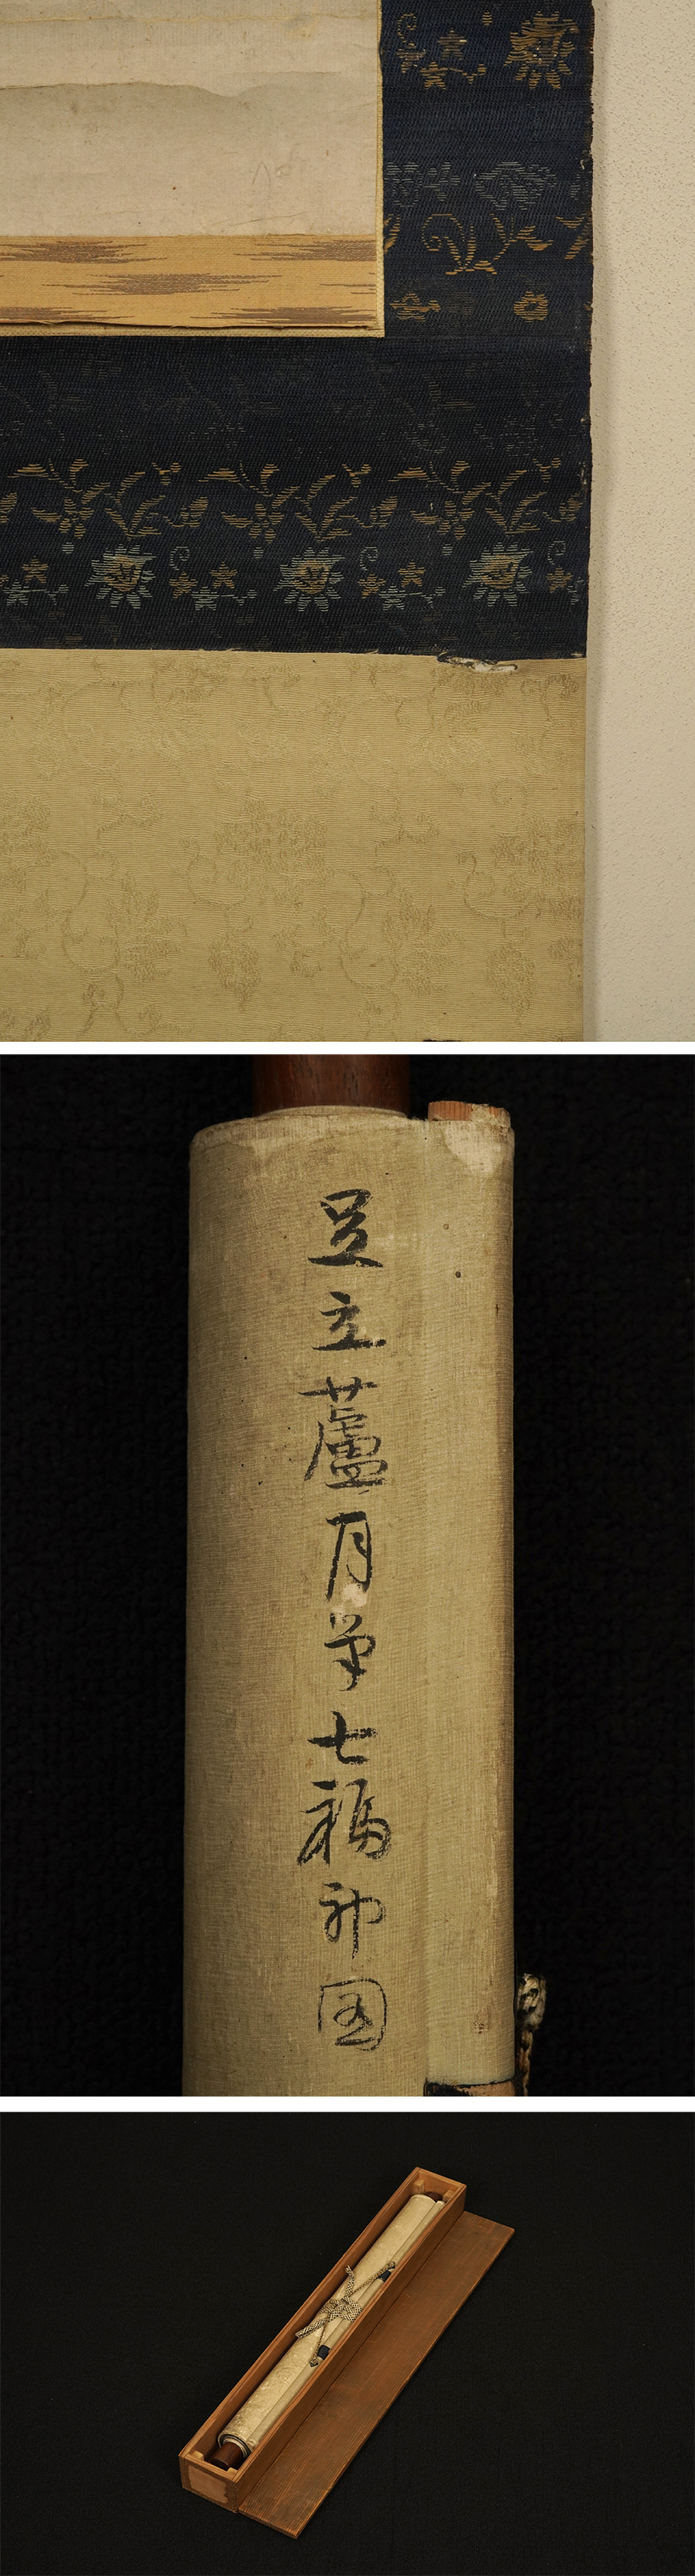 足立蘆月筆七福神図